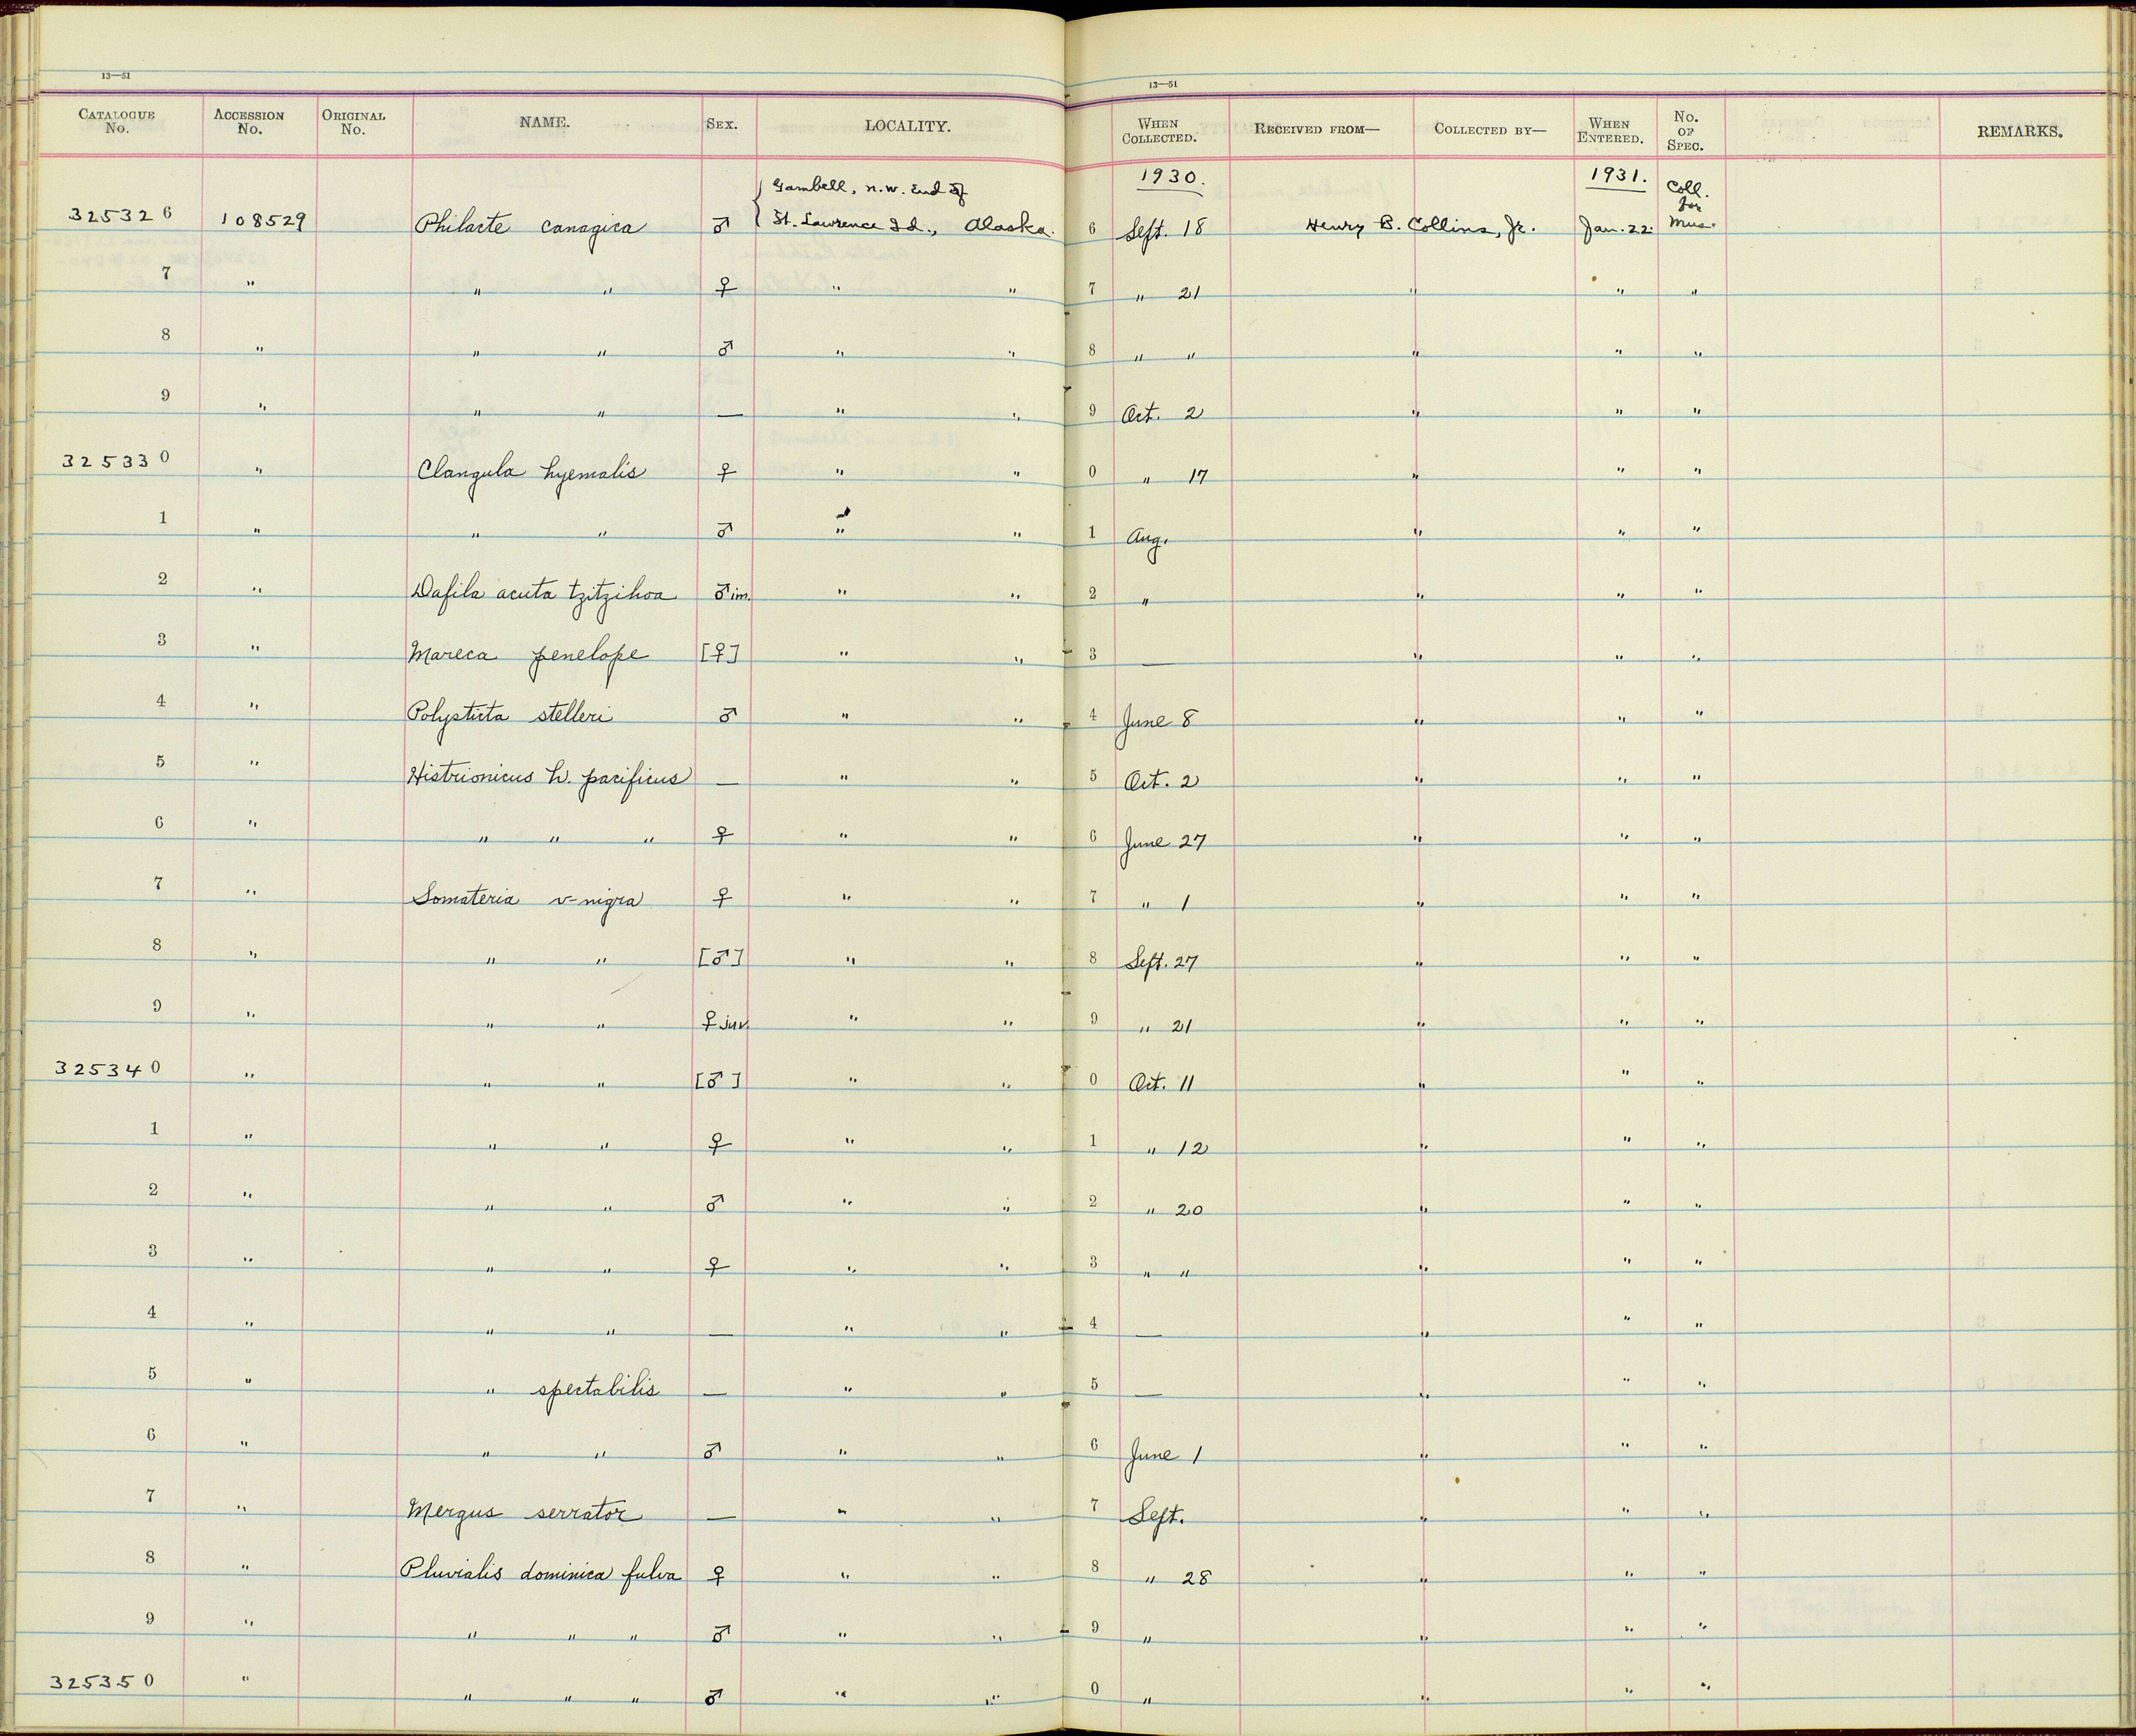 13—51
13—51
CATALOGUE No. ACCESSION No. ORIGINAL No. NAME. SEX. LOCALITY. WHEN COLLECTED. RECEIVED FROM— COLLECTED BY— WHEN ENTERED. No. OF SPEC. REMARKS.
Gambell, N.W. End of 1930. 1931. Coll. for
325326 108529 Philacte canagica ♂ St. Lawrence Id., Alaska. 6 Sept. 18 Henry B. Collins, Jr. Jan. 22. Mus.
7 " " " ♀ " " 7 " 21 " " "
8 " " " ♂ " " 8 " " " " "
9 " " " — " " 9 Oct. 2 " " "
325330 " Clangula hyemalis ♀ " " 0 " 17 " " "
1 " " " ♂ " " 1 Aug. " " "
2 " Dafila acuta tzitzihoa ♂ im. " " 2 " " " "
3 " Mareca penelope [♀] " " 3 — " " "
4 " Polysticta stelleri ♂ " " 4 June 8 " " "
5 " Histrionicus h. pacificus — " " 5 Oct. 2 " " "
6 " " " " ♀ " " 6 June 27 " " "
7 " Somateria v-nigra ♀ " " 7 " 1 " " "
8 " " " [♂] " " 8 Sept. 27 " " "
9 " " " ♀ juv. " " 9 " 21 " " "
325340 " " " [♂] " " 0 Oct. 11 " " "
1 " " " ♀ " " 1 " 12 " " "
2 " " " ♂ " " 2 " 20 " " "
3 " " " ♀ " " 3 " " " " "
4 " " " — " " 4 — " " "
5 " " spectabilis — " " 5 — " " "
6 " " " ♂ " " 6 June 1 " " "
7 " Mergus serrator — " " 7 Sept. " " "
8 " Pluvialis dominica fulva ♀ " " 8 " 28 " " "
9 " " " " ♂ " " 9 " " " "
325350 " " " " ♂ " " 0 " " " "